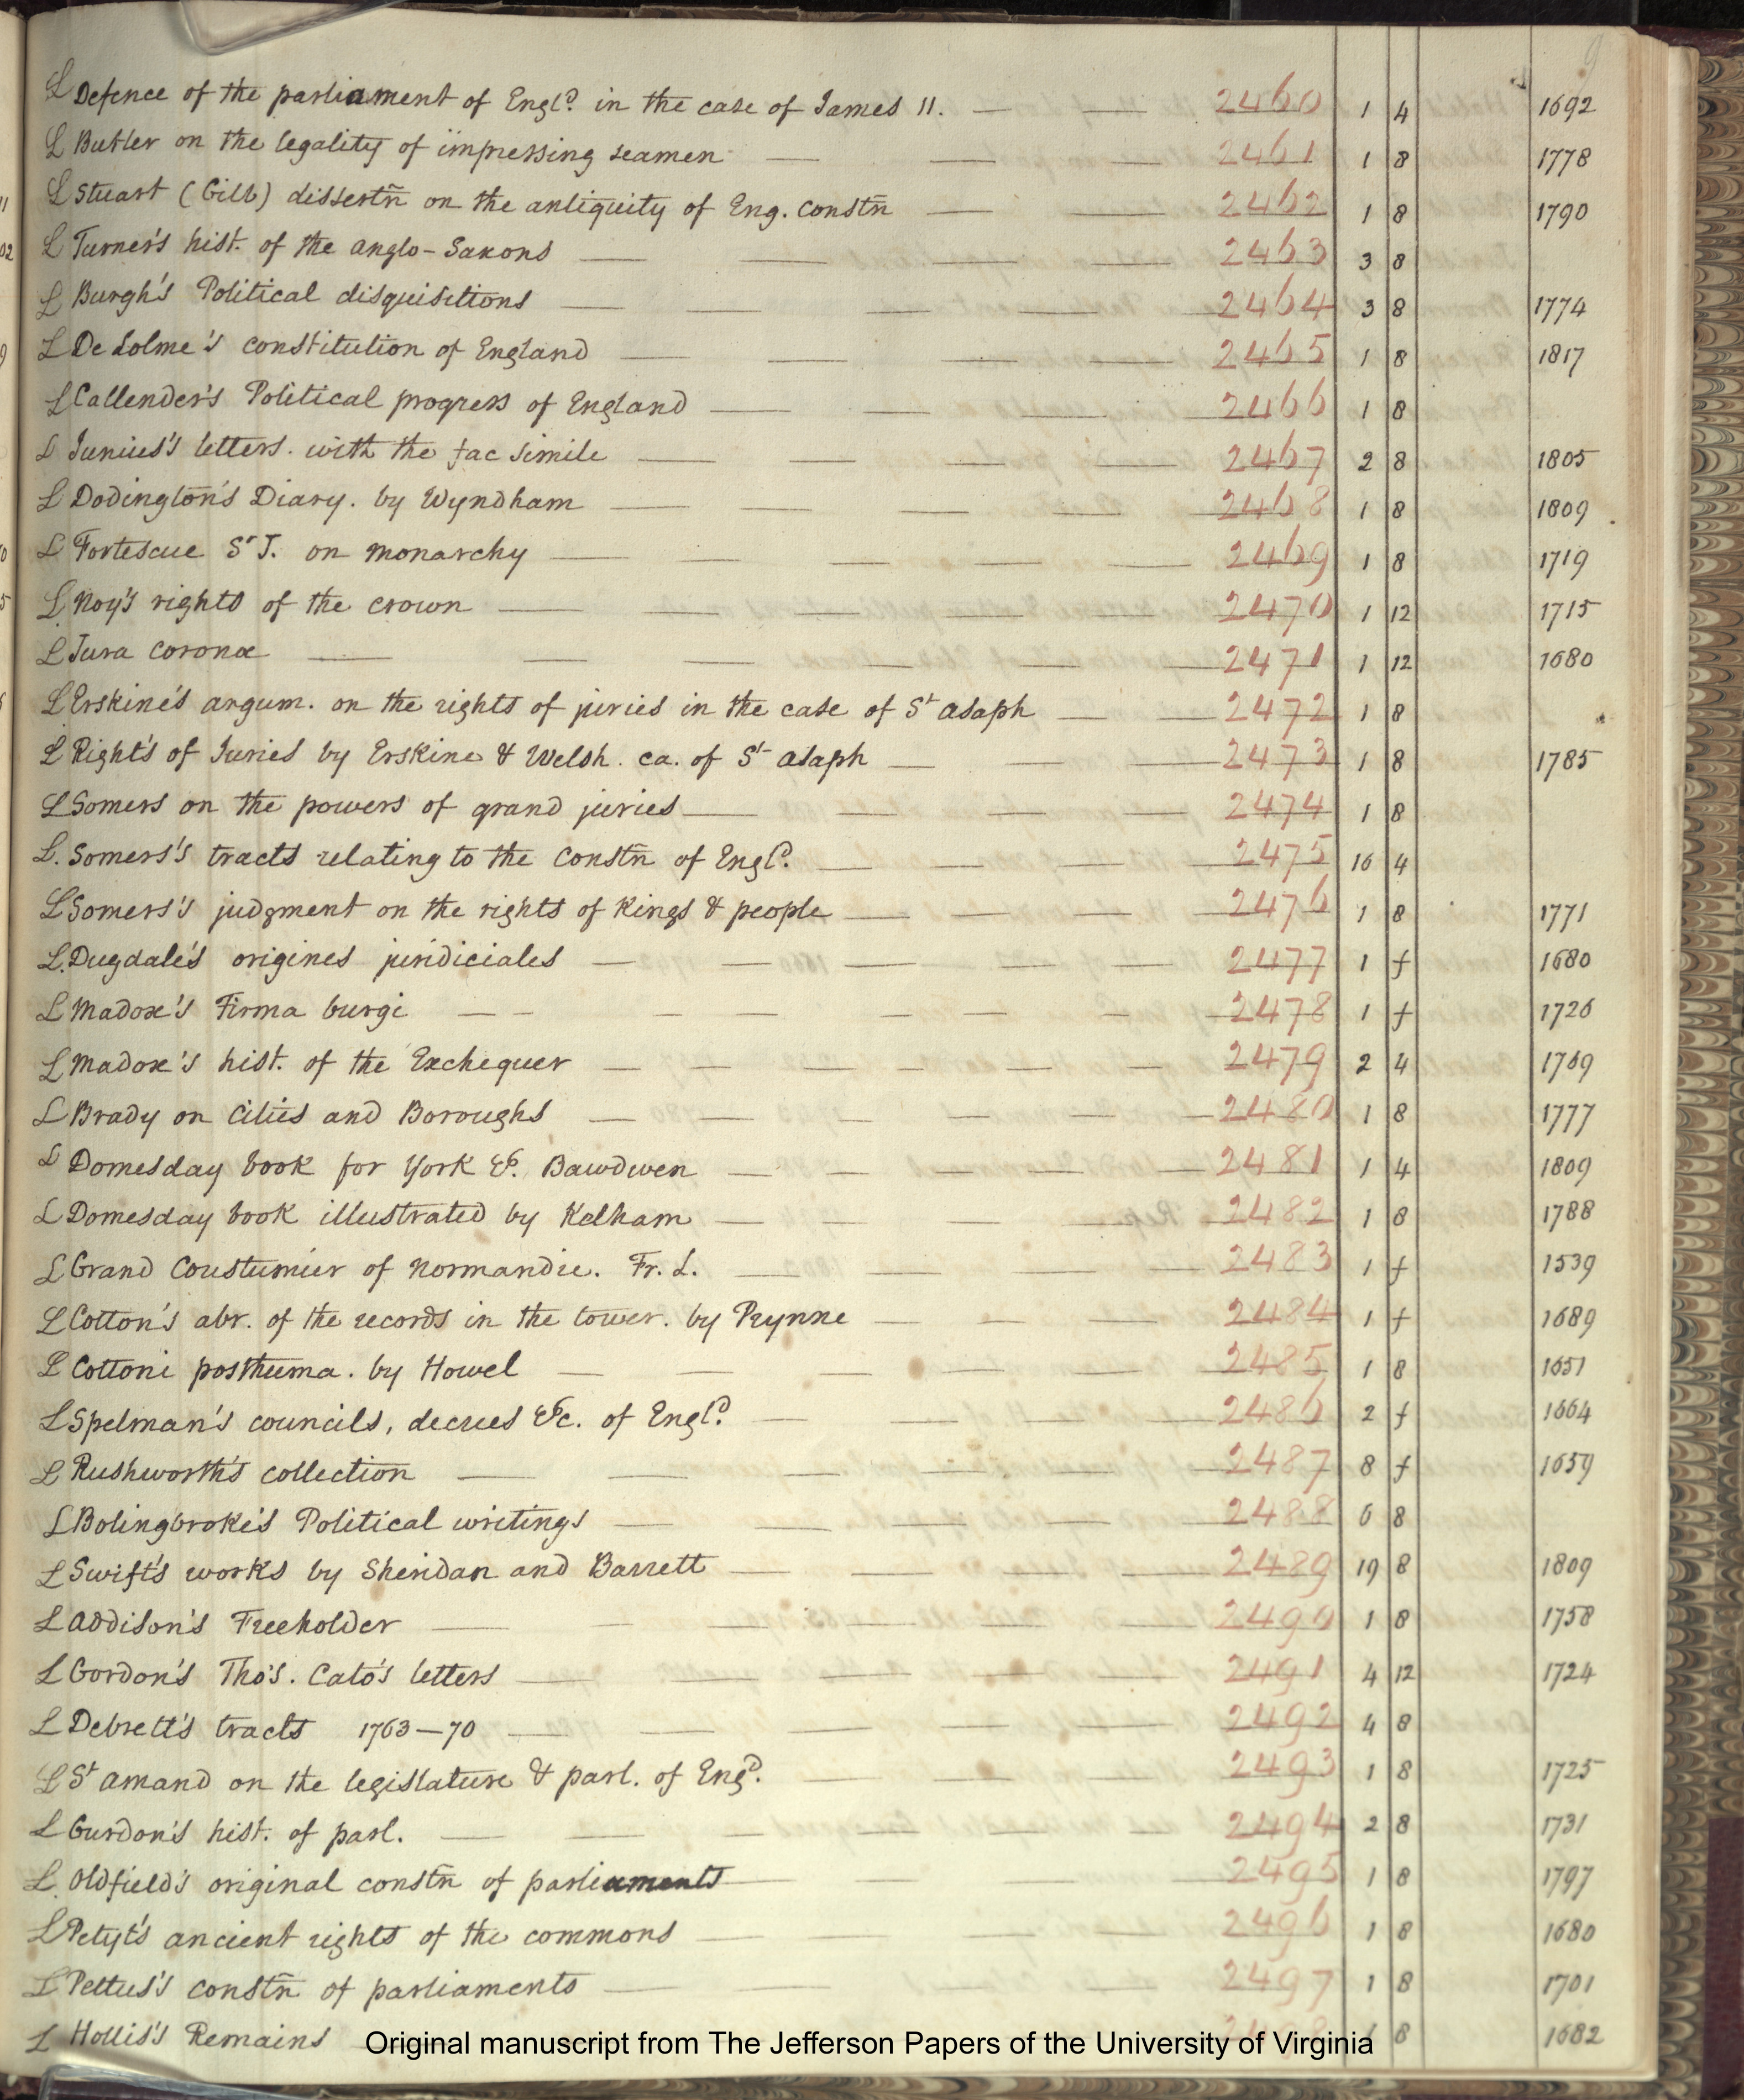 L Defence of the parliament of Engld. in the case of James II. — — 2460 1 4 1692
L Butler on the legality of impressing seamen — — — 2461 1 8 1778
L Stuart (Gilb) dissertñ on the antiquity of Eng. constñ — — 2462 1 8 1790
L Turner's hist. of the Anglo-Saxons — — — — 2463 3 8
L Burgh's Political disquisitions — — — — — 2464 3 8 1774
L De Lolme's constitution of England — — — — 2465 1 8 1817
L Callender's Political progress of England — — — 2466 1 8
L Junius's letters. with the fac simile — — — — 2467 2 8 1805
L Dodington's Diary. by Wyndham — — — — 2468 1 8 1809
L Fortescue Sr J. on monarchy — — — — — 2469 1 8 1719
L Noy's rights of the crown — — — — — 2470 1 12 1715
L Jura coronæ — — — — — — 2471 1 12 1680
L Erskine's argum. on the rights of juries in the case of St Asaph — — 2472 1 8
L Right's of Juries by Erskine & Welsh. ca. of St Asaph — — — 2473 1 8 1785
L Somers on the powers of grand juries — — — — 2474 1 8
L. Somers's tracts relating to the constñ of Engld. — — — 2475 16 4
L Somers's judgment on the rights of Kings & people — — — 2476 1 8 1771
L. Dugdale's origines juridiciales — — — — — 2477 1 f 1680
L Madox's Firma burgi — — — — — — 2478 1 f 1726
L Madox's hist. of the Exchequer — — — — — — 2479 2 4 1769
L Brady on cities and Boroughs — — — — — 2480 1 8 1777
L Domesday book for York &c. Bawdwen — — — — 2481 1 4 1809
L Domesday book illustrated by Kelham — — — — 2482 1 8 1788
L Grand Coustumier of Normandie. Fr. L. — — — — 2483 1 f 1539
L Cotton's abr. of the records in the tower. by Prynne — — — 2484 1 f 1689
L Cottoni posthuma. by Howel — — — — — 2485 1 8 1651
L Spelman's councils, decrees &c. of Engld. — — — — 2486 2 f 1664
L Rushworth's collection — — — — — — 2487 8 f 1659
L Bolingbroke's Political writings — — — — 2488 6 8
L Swift's works by Sheridan and Barrett — — — — 2489 19 8 1809
L Addison's Freeholder — — — — — — 2490 1 8 1758
L Gordon's Tho's. Cato's letters — — — — — 2491 4 12 1724
L Debrett's tracts 1763—70 — — — — — 2492 4 8
L St Amand on the legislature & parl. of Engd. — — — 2493 1 8 1725
L Gurdon's hist. of parl. — — — — — — 2494 2 8 1731
L. Oldfield's original constñ of parliaments — — — 2495 1 8 1797
L Petyt's ancient rights of the commons — — — — 2496 1 8 1680
L Pettus's constñ of parliaments — — — — 2497 1 8 1701
L Hollis's Remains 8 1682
Original manuscript from The Jefferson Papers of the University of Virginia